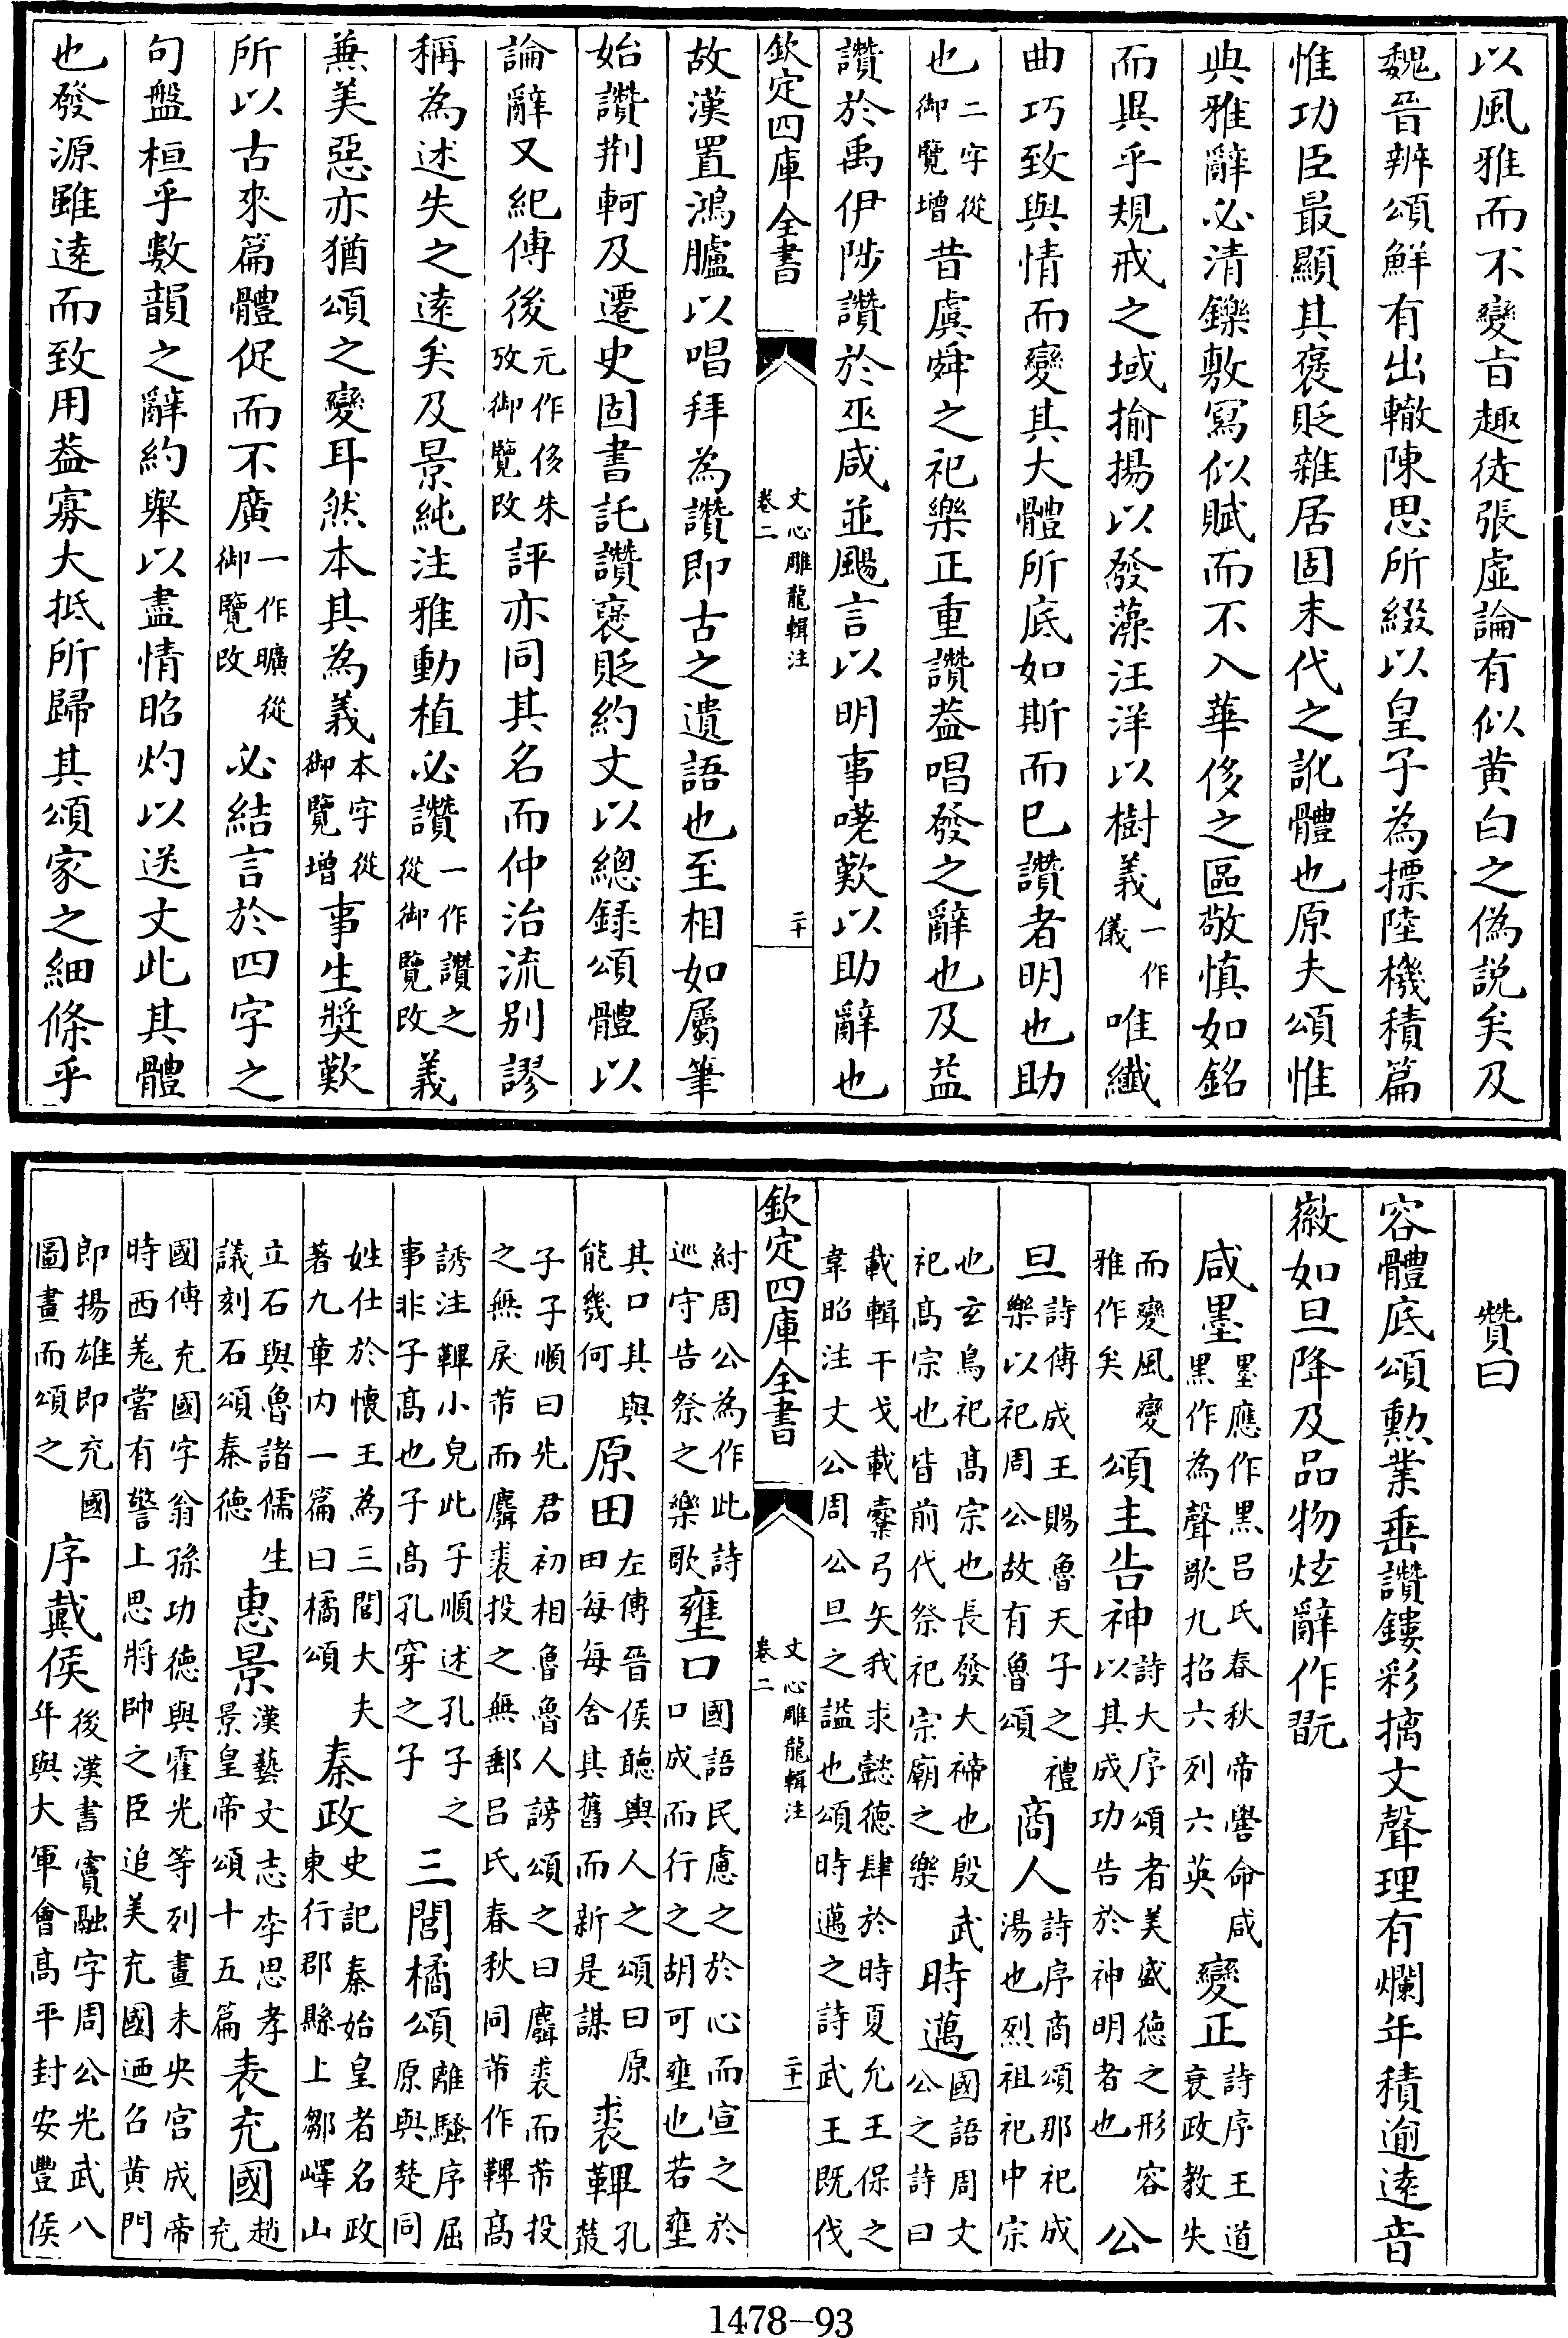 以風雅而不變旨趣徒張虛論有似黄白之偽説矣及
魏晉辨頌鮮有出轍陳思所綴以皇子為摽陸機積篇
惟功臣最顯其褒貶雜居固末代之訛體也原夫頌惟
典雅辭必清鑠敷寫似賦而不入華侈之區敬慎如銘
而異乎規戒之域揄揚以發藻汪洋以樹義一作儀唯纖
曲巧致與情而變其大體所底如斯而已讚者明也助
也二字從御覽增昔虞舜之祀樂正重讚葢唱發之辭也及益
讚於禹伊陟讚於巫咸並颺言以明事嗟歎以助辭也
欽定四庫全書 卷二 文心雕龍輯注 二十
故漢置鴻臚以唱拜為讚即古之遺語也至相如屬筆
始讚荆軻及遷史固書託讚褒貶約文以總録頌體以
論辭又紀傳後元作侈朱攷御覽改評亦同其名而仲治流别謬
稱為述失之逺矣及景純注雅動植必讚一作讚之從御覽改義
兼美惡亦猶頌之變耳然本其為義本字從御覽增事生奬歎
所以古來篇體促而不廣一作曠從御覽改必結言於四字之
句盤桓乎數韻之辭約舉以盡情昭灼以送文此其體
也發源雖逺而致用葢寡大抵所歸其頌家之細條乎
贊曰
容體底頌勲業垂讚鏤彩摛文聲理有爛年積逾逺音
徽如旦降及品物炫辭作翫
咸墨墨應作黑吕氏春秋帝嚳命咸黑作為聲歌九招六列六英 變正詩序王道衰政教失
而變風變雅作矣 頌主告神詩大序頌者美盛德之形容以其成功告於神明者也 公
旦詩傳成王賜魯天子之禮樂以祀周公故有魯頌 商人詩序商頌那祀成湯也烈祖祀中宗
也玄鳥祀髙宗也長發大禘也殷武祀髙宗也皆前代祭祀宗廟之樂 時邁國語周文公之詩曰
載輯干戈載櫜弓矢我求懿德肆於時夏允王保之韋昭注文公周公旦之諡也頌時邁之詩武王既伐
欽定四庫全書 卷二 文心雕龍輯注 二十一
紂周公為作此詩巡守告祭之樂歌 壅口國語民慮之於心而宣之於口成而行之胡可壅也若壅
其口其與能幾何 原田左傳晉侯聽輿人之頌曰原田每每舍其舊而新是謀 裘鞸孔叢
子子順曰先君初相魯魯人謗頌之曰麛裘而芾投之無戾芾而麛裘投之無郵吕氏春秋同芾作鞸髙
誘注鞸小皃此子順述孔子之事非子髙也子髙孔穿之子 三閭橘頌離騷序屈原與楚同
姓仕於懷王為三閭大夫著九章内一篇曰橘頌 秦政史記秦始皇者名政東行郡縣上鄒嶧山
立石與魯諸儒生議刻石頌秦德 惠景漢藝文志李思孝景皇帝頌十五篇 表充國趙充
國傳充國字翁孫功德與霍光等列畫未央宫成帝時西羌嘗有警上思將帥之臣追美充國迺召黄門
即揚雄即充國圖畫而頌之 序戴侯後漢書竇融字周公光武八年與大軍會髙平封安豐侯
1478-93